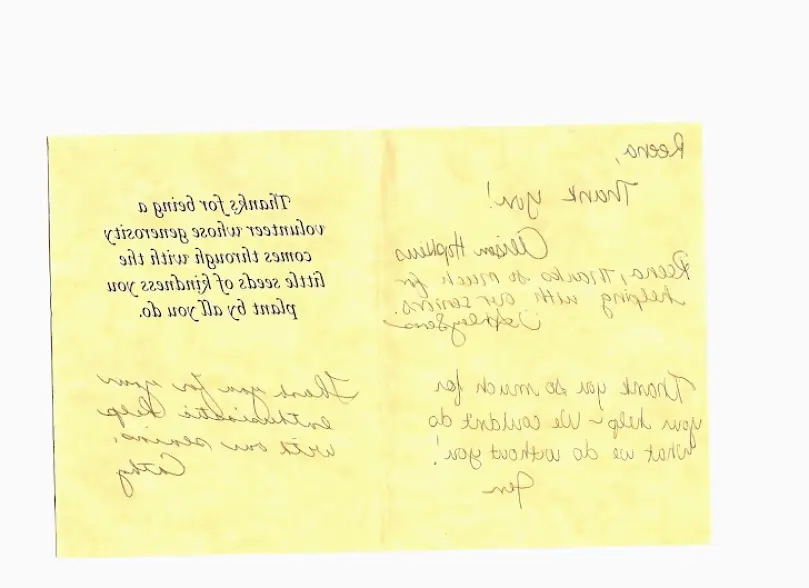 Reena,
Thank you!
Alison Hopkins
Reena, Thanks so much for
helping with our seniors.
Thank you so much for
your help - We couldn't do
what we do without you!
Jen
Thanks for being a
volunteer whose generosity
comes through with the
little seeds of kindness you
plant by all you do.
Thank you for your
enthusiastic help
with our seniors!
Cathy